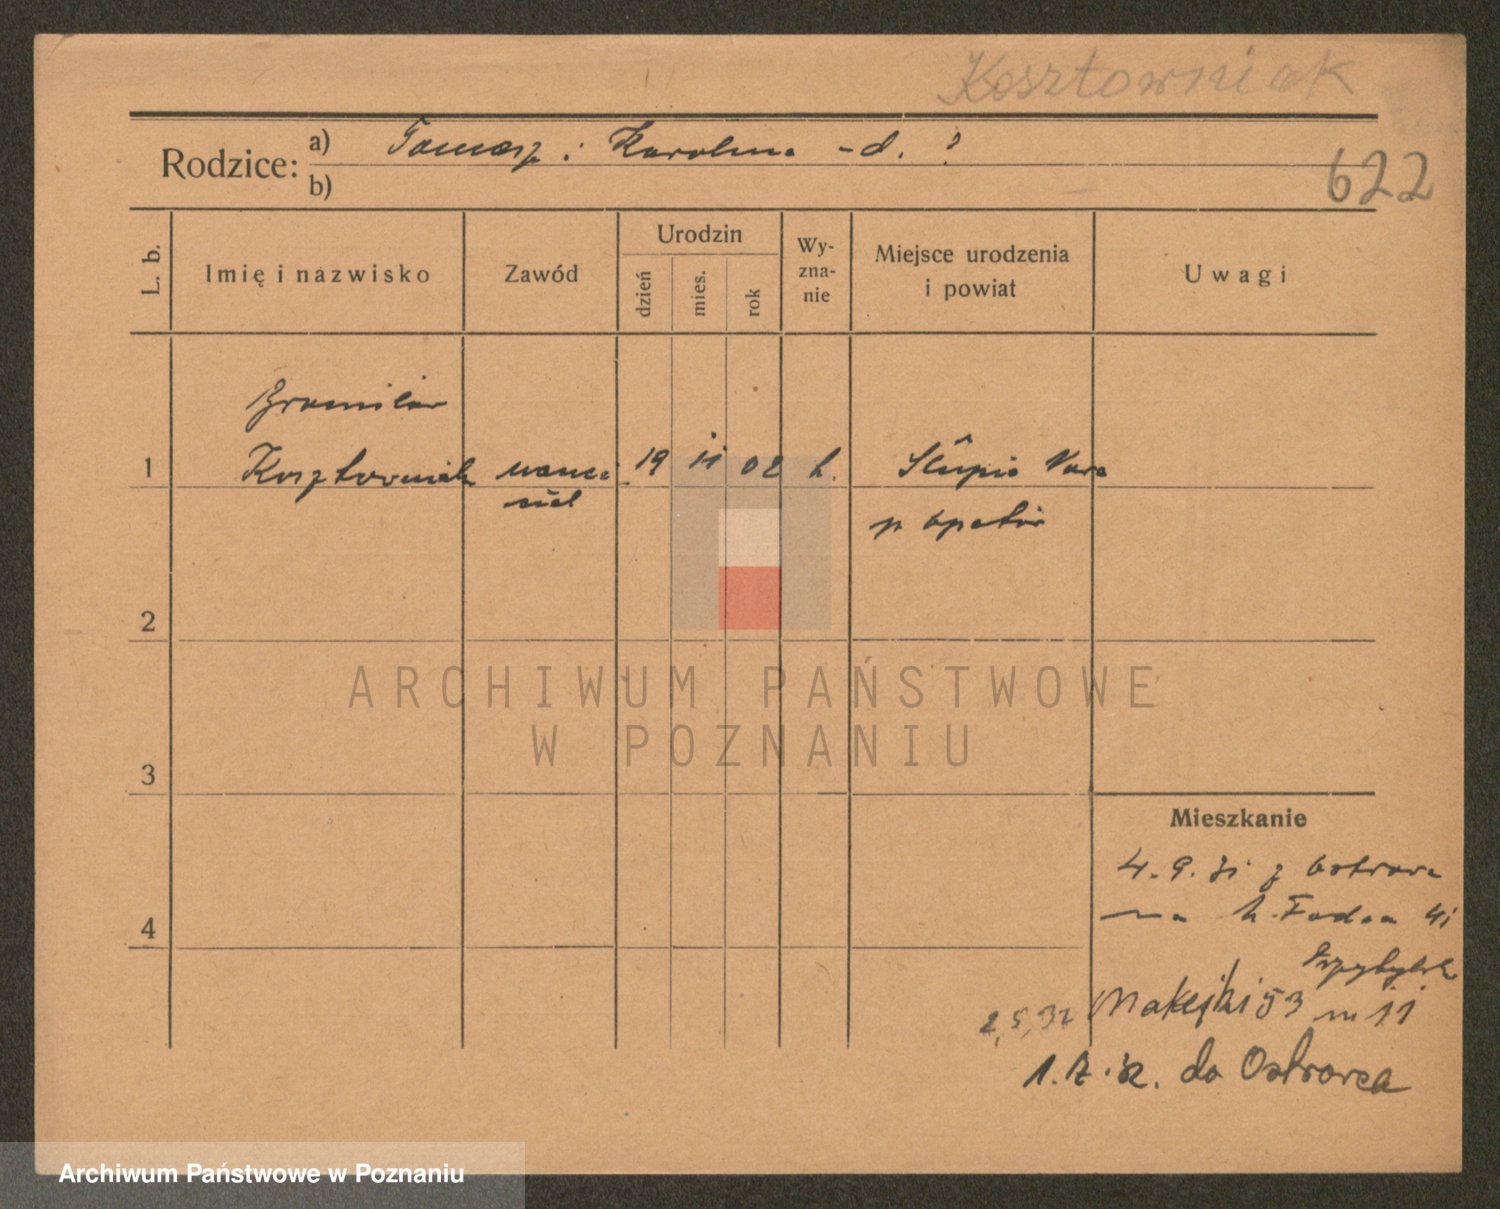 Kosztowniak
Rodzice: a) Tomasz i Karolina - d. ?
b)
622
L. b.
Imię i nazwisko
Zawód
Urodzin
dzień
mies.
rok
Wy-
zna-
nie
Miejsce urodzenia
i powiat
Uwagi
Bronisław
1 Kosztowniak nauczy 19 11 02 k. Słupia
ciel
p opatów
2
ARCHIWUM PAŃSTWOWE
W POZNANIU
3
Mieszkanie
4. 9. 31 z Ostrowca
4
na 41
2,5,32 53 m 11
do Ostrowca
Archiwum Państwowe w Poznaniu